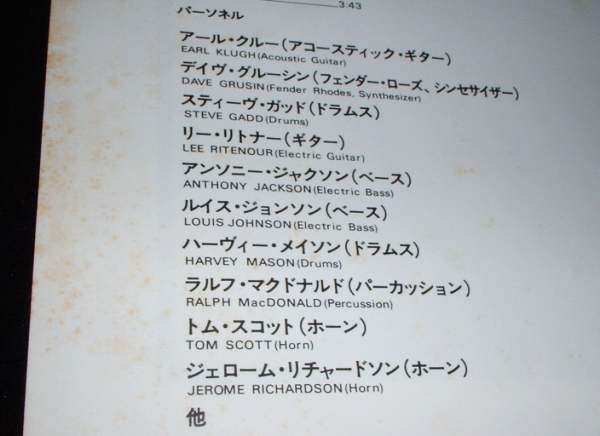 3:43
パーソネル
アール・クルー(アコースティック・ギター)
EARL KLUGH(Acoustic Guitar)
デイヴ・グルーシン(フェンダー・ローズ、シンセサイザー)
DAVE GRUSIN(Fender Rhodes, Synthesizer)
スティーヴ・ガッド(ドラムス)
STEVE GADD(Drums)
リー・リトナー(ギター)
LEE RITENOUR(Electric Guitar)
アンソニー・ジャクソン(ベース)
ANTHONY JACKSON(Electric Bass)
ルイス・ジョンソン(ベース)
LOUIS JOHNSON(Electric Bass)
ハーヴィー・メイソン(ドラムス)
HARVEY MASON(Drums)
ラルフ・マクドナルド(パーカッション)
RALPH MacDONALD(Percussion)
トム・スコット(ホーン)
TOM SCOTT(Horn)
ジェローム・リチャードソン(ホーン)
JEROME RICHARDSON(Horn)
他